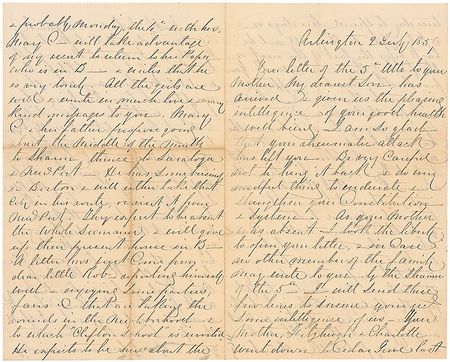 Arlington 2 July 185
Your letter of the 5th Ulto to your
Mother, My dearest Son has
arrived & given us the pleasing
intelligence of your good health
& well being. I am so glad
that your rheumatic attack
has left you. Be very careful
not to bring it back & do every
needful thing to eradicate &
strengthen your Constitution
& System. As your Mother
was absent I took the liberty
to open your letter, & in case
no other member of the family
may write to you by the Steamer
of the 5th I will send these
few lines to ensure your
some intelligence of us. Your
Mother, Fitzhugh & Charlotte
went down to Cedar Grove last
& probably Monday, the 4th with her.
Mary C will take advantage
of my visit to return to her Papa
who is in B & writes that he
is very lonely. All the girls are
well & unite in much love & many
kind messages to you. Mary
C & her father propose going
about the middle of the Month
to Sharon, thence to Saratoga
& NewPort. He has some business
in Boston & will either take that
City in his route, or visit it from
NewPort. They expect to be absent
the whole Summer, & will give
up their present house in B
A letter has just come from
dear little Rob reporting himself
well & enjoying some parties
fairs & that are taking the
rounds in the neighborhood &
to which "Clifton School" is invited
He expects to be here about the